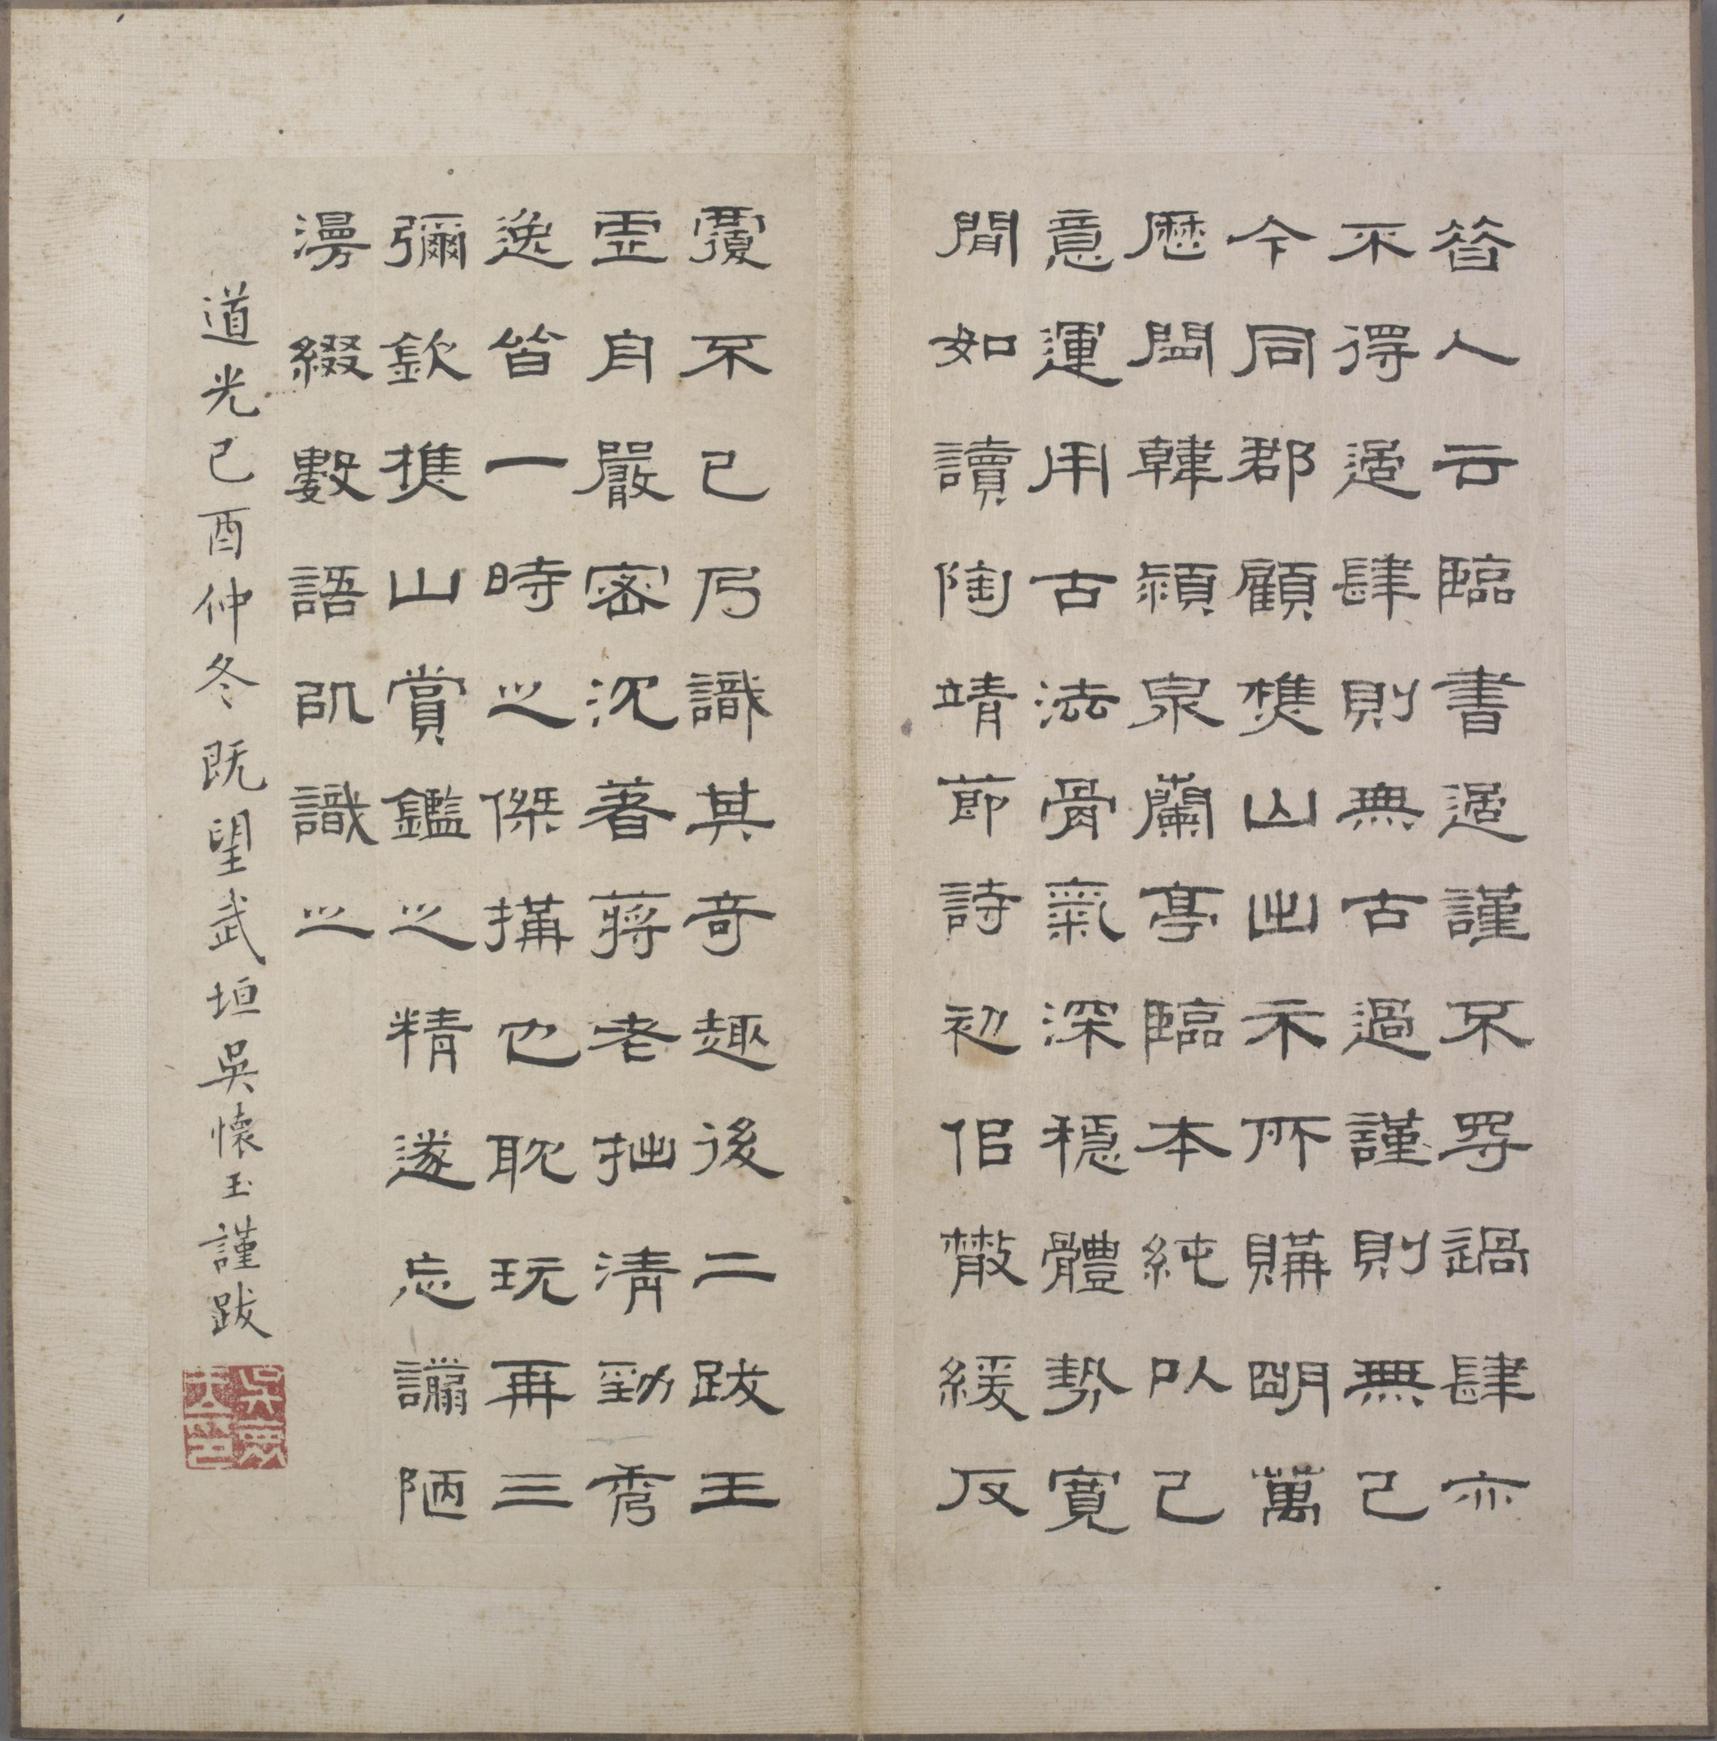 昔人云臨書過謹不㝵過肆亦
不得過肆則無古過謹則無己
今同郡顧樵山出示所購明萬
歷閩韓潁泉蘭亭臨本純以己
意運用古法骨氣深穩體勢寬
閒如讀陶靖節詩初佀散緩反
覆不已乃識其奇趣後二跋王
虛舟嚴密沉著蔣老拙清勁秀
逸皆一時之傑搆也耽玩再三
彌欽樵山賞鑑之精遂忘譾陋
漫綴數語㠯識之
道光己酉仲冬既望武垣吳懷玉謹跋